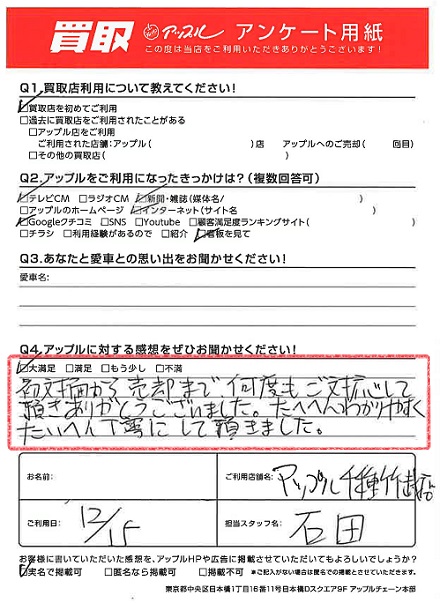 買取 アップル アンケート用紙
この度は当店をご利用いただきありがとうございます!
Q1.買取店利用について教えてください!
☑買取店を初めてご利用
□過去に買取店をご利用されたことがある
□アップル店をご利用
ご利用された店舗:アップル( )店 アップルへのご売却( 回目)
□その他の買取店( )
Q2.アップルをご利用になったきっかけは?(複数回答可)
☑テレビCM □ラジオCM ☑新聞・雑誌(媒体名/ )
□アップルのホームページ ☑インターネット(サイト名 )
☑Googleクチコミ □SNS □Youtube □顧客満足度ランキングサイト( )
□チラシ □利用経験があるので □紹介 ☑看板を見て
Q3.あなたと愛車との思い出をお聞かせください!
愛車名:
Q4.アップルに対する感想をぜひお聞かせください!
☑大満足 □満足 □もう少し □不満
初対面から売却まで、何度もご対応して
頂きありがとうございました。たいへんわかりやすく
たいへん丁寧にして頂きました。
お名前: ご利用店舗名: アップル千種竹越店
ご利用日: 12/15 担当スタッフ名: 石田
お客様に書いていただいた感想を、アップルHPや広告に掲載させていただいてもよろしいでしょうか?
☑実名で掲載可 □匿名なら掲載可 □掲載不可 ※ご記入がない場合は匿名での掲載とさせていただきます。
東京都中央区日本橋1丁目16番11号日本橋Dスクエア9F アップルチェーン本部